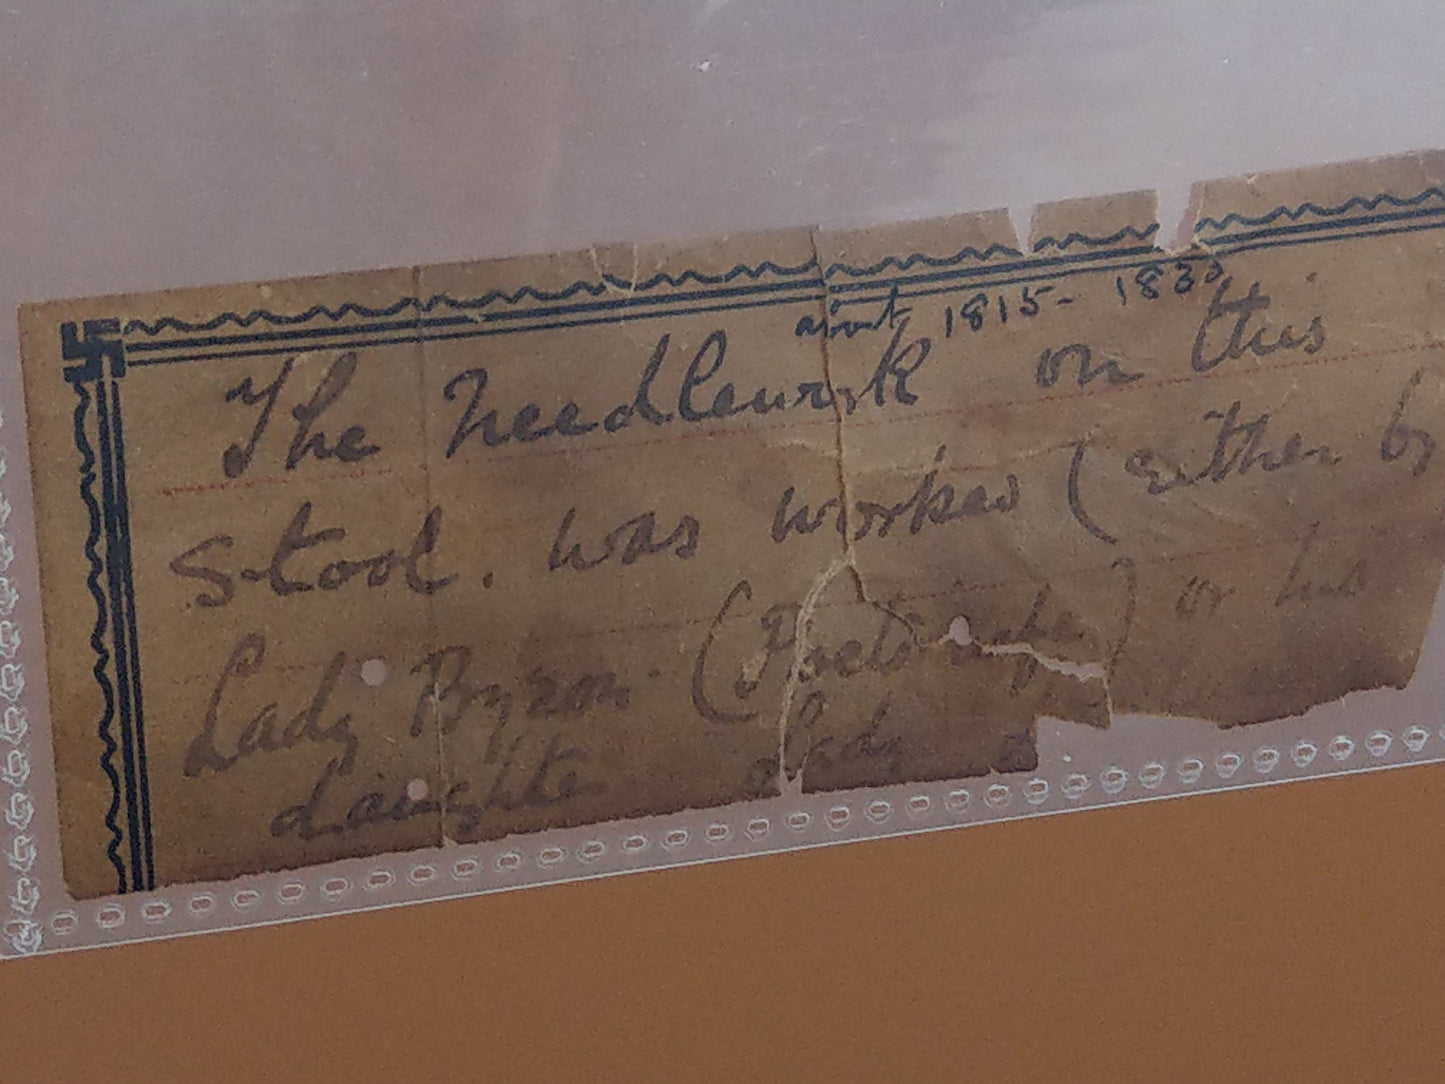 about 1815-1830
The Needlework on this
Stool. was worked (either by
Lady Byron. (Poets wife) or his
daughter Lady